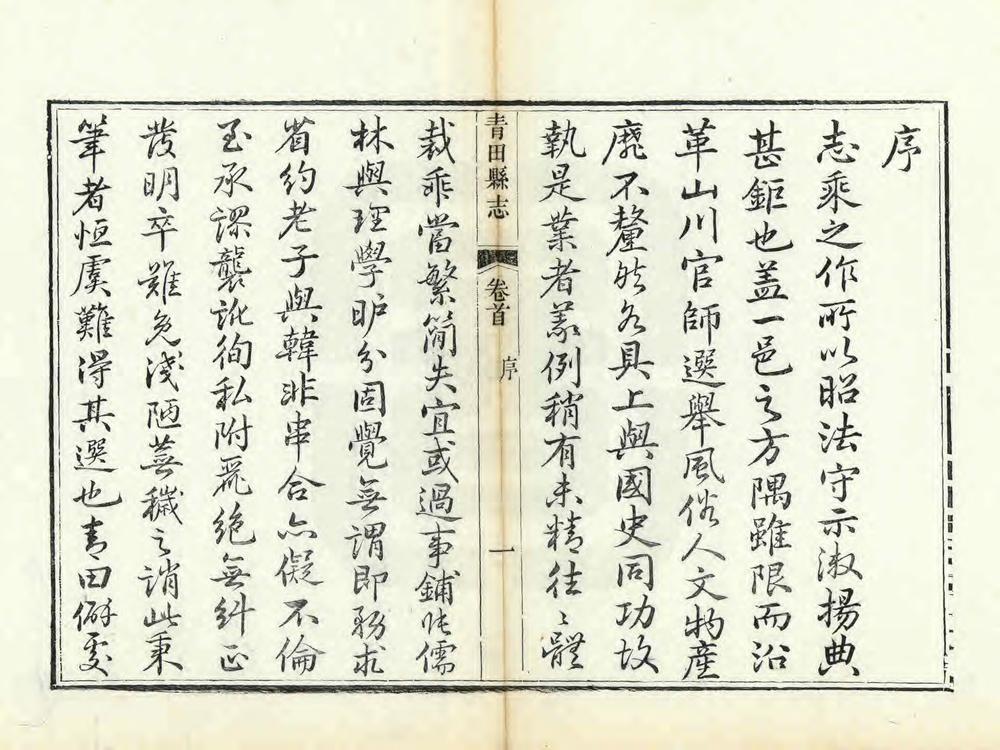 序
志乘之作所以昭法守示淑揚典
甚鉅也盖一邑之方隅雖限而沿
革山川官師選舉風俗人文物產
靡不釐然各具上與國史同功故
執是業者義例稍有未精往〻體
青田縣志 卷首 序 一
裁乖當繁簡失宜或過事鋪張儒
林與理學昈分固覺無謂即務求
省約老子與韓非串合亦儗不倫
至承謬襲訛徇私附麗絕無糾正
發明卒難免淺陋蕪穢之誚此秉
筆者恒虞難得其選也青田僻處